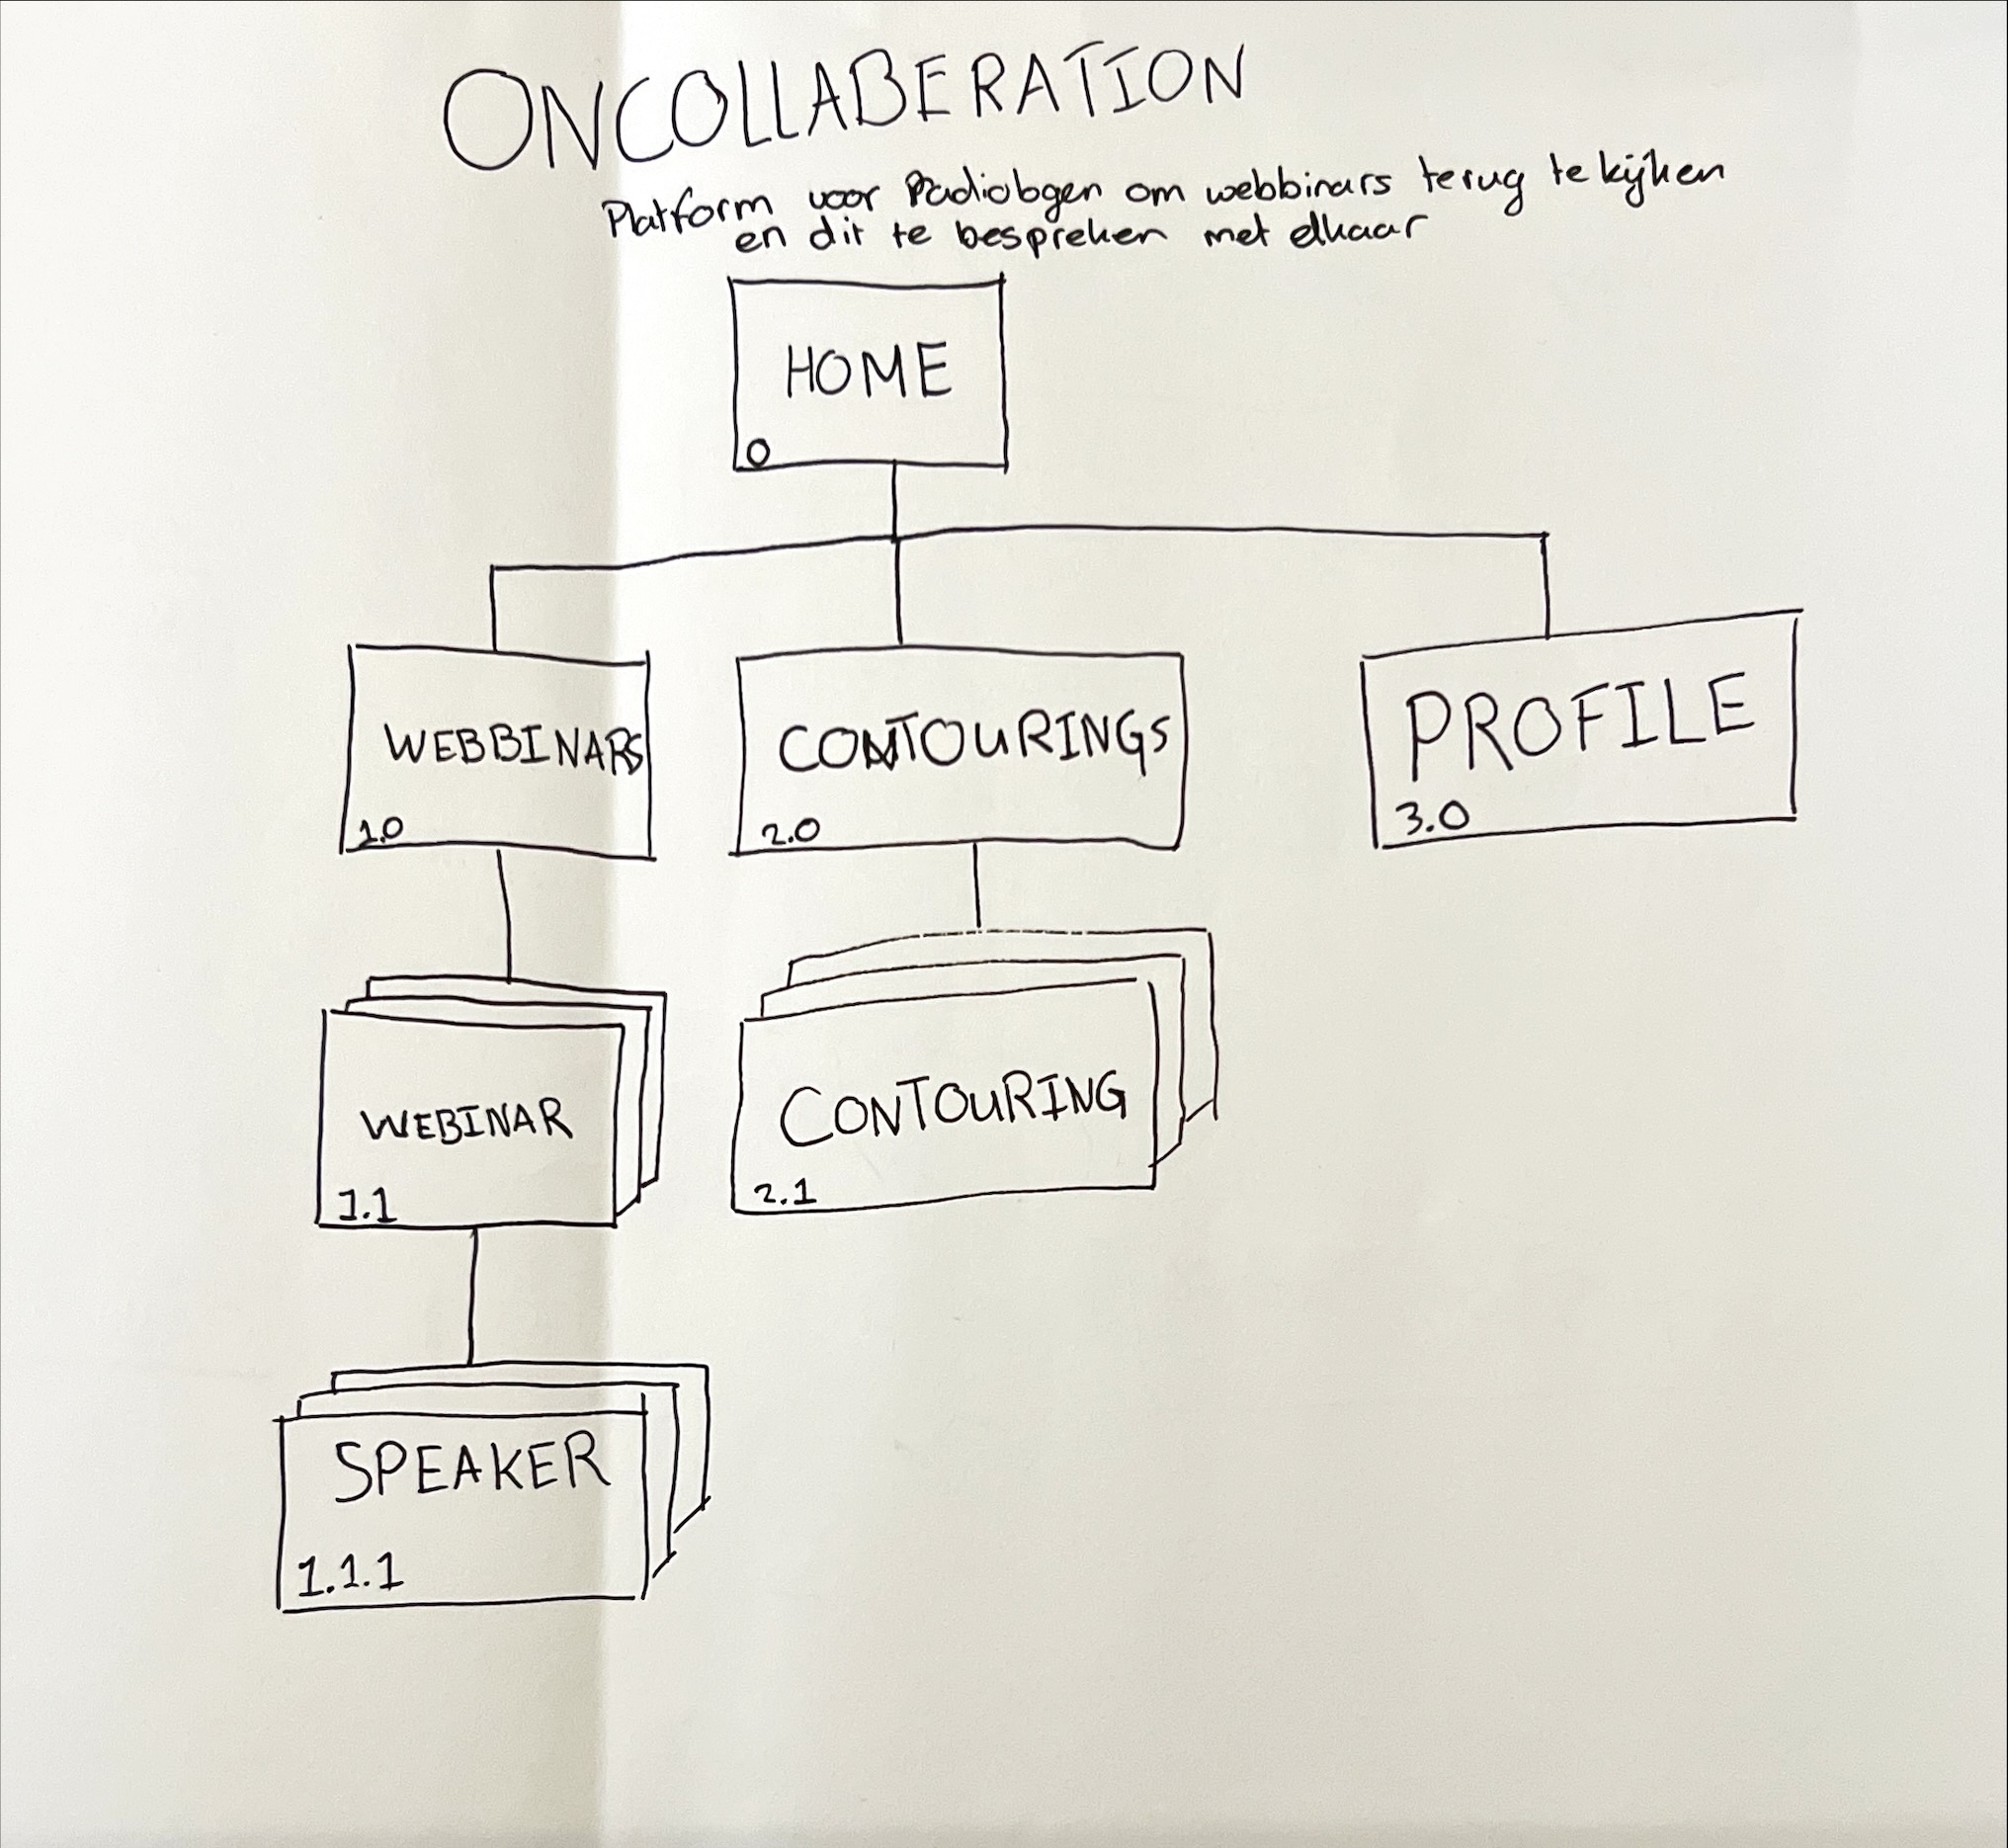 ONCOLLABERATION
Platform voor Radiologen om webbinars terug te kijken
en dit te bespreken met elkaar
HOME
0
WEBBINARS
1.0
CONTOURINGS
2.0
PROFILE
3.0
WEBINAR
1.1
CONTOURING
2.1
SPEAKER
1.1.1